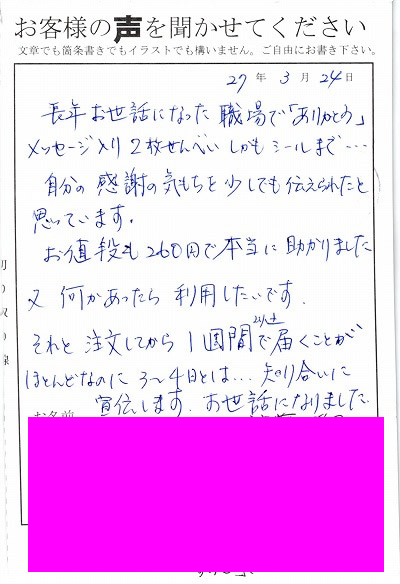 お客様の声を聞かせてください
文章でも箇条書きでもイラストでも構いません。ご自由にお書き下さい。
27年 3月 24日
長年お世話になった職場で「ありがとう」
メッセージ入り2枚せんべいしかもシールまで…
自分の感謝の気もちを少しでも伝えられたと
思っています。
お値段も260円で本当に助かりました
又何かあったら利用したいです。
以上
それと注文してから1週間で届くことが
ほとんどなのに3〜4日とは…知り合いに
宣伝します。お世話になりました。
お名前